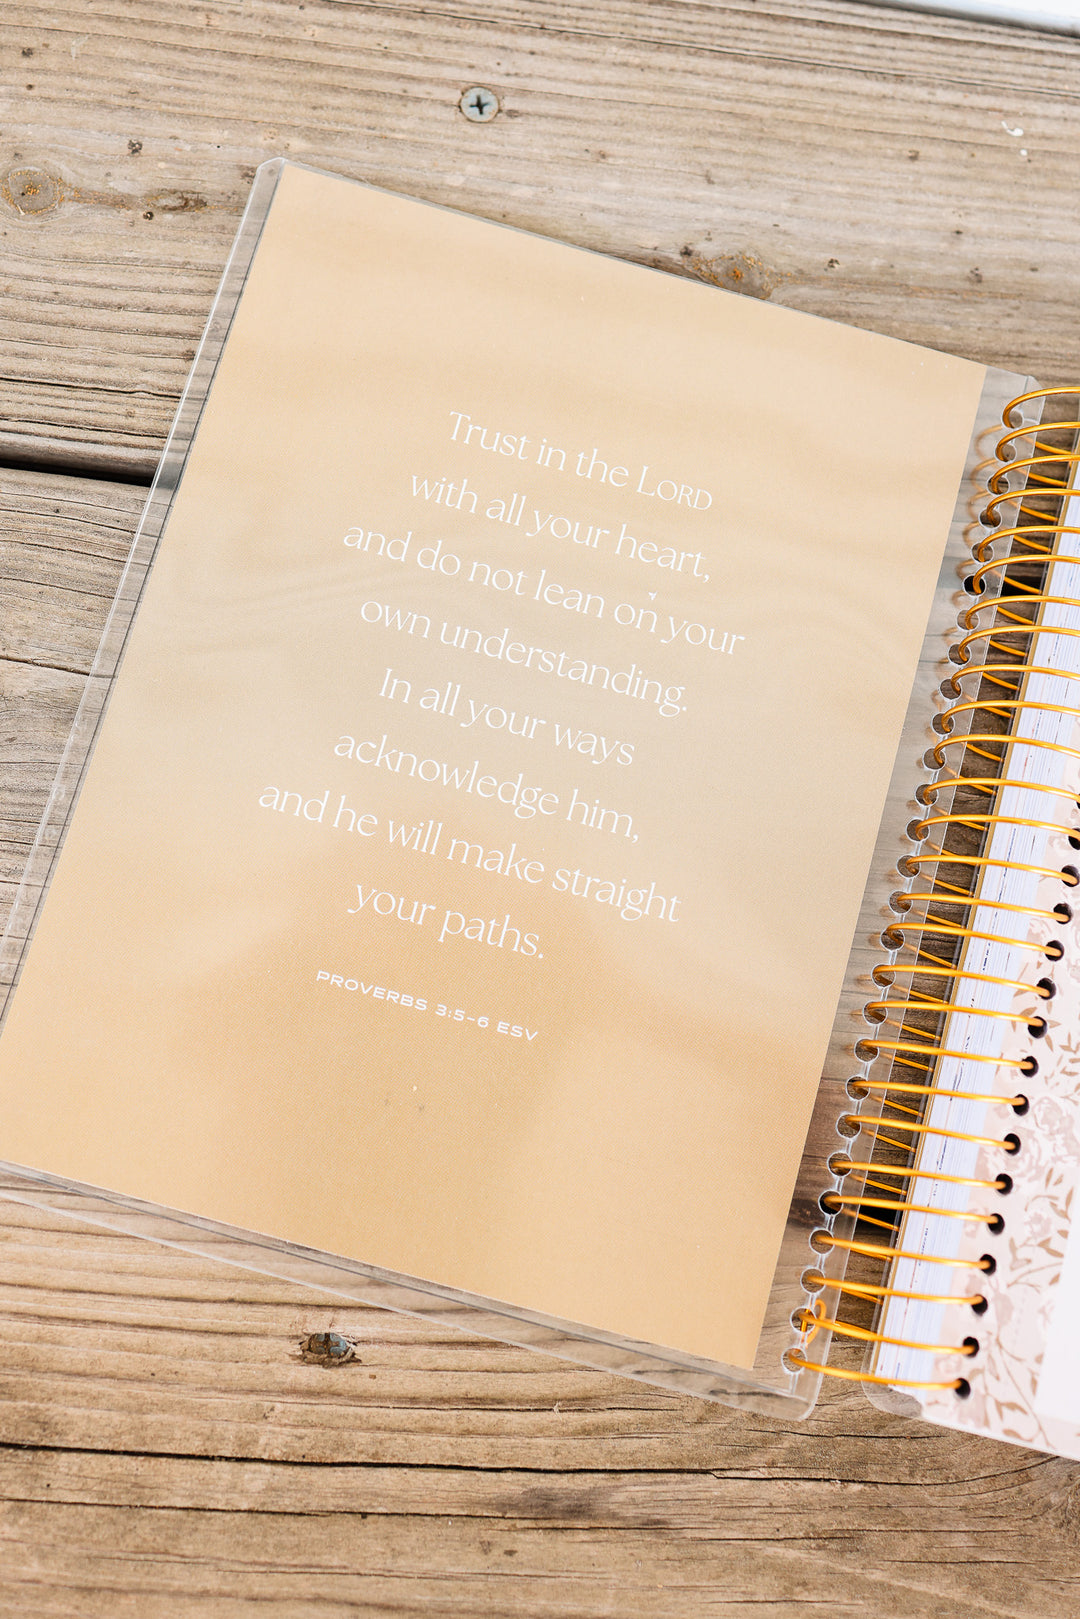 Trust in the LORD
with all your heart,
and do not lean on your
own understanding.
In all your ways
acknowledge him,
and he will make straight
your paths.
PROVERBS 3:5-6 ESV